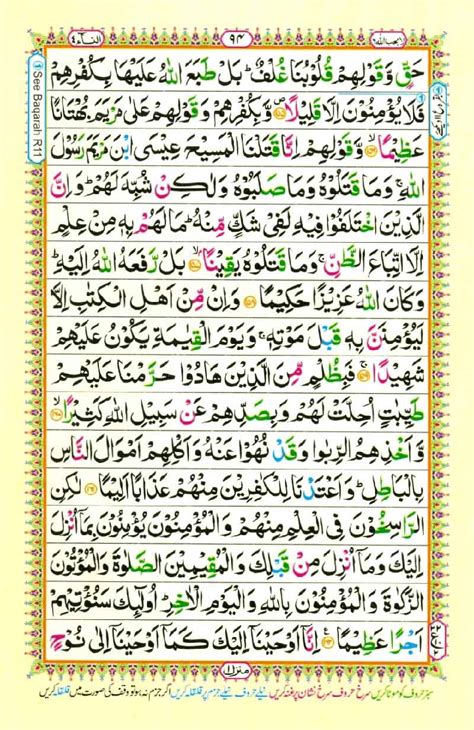 لا يحب الله ٦
٩٤
النسآء ٤
حَقٍّ وَّقَوْلِهِمْ قُلُوْبُنَا غُلْفٌ ؕ بَلْ طَبَعَ اللّٰهُ عَلَيْهَا بِكُفْرِهِمْ
فَلَا يُؤْمِنُوْنَ اِلَّا قَلِيْلًا ۪ وَّبِكُفْرِهِمْ وَقَوْلِهِمْ عَلٰى مَرْيَمَ بُهْتَانًا
عَظِيْمًا ۙ وَّقَوْلِهِمْ اِنَّا قَتَلْنَا الْمَسِيْحَ عِيْسَى ابْنَ مَرْيَمَ رَسُوْلَ
اللّٰهِ ۚ وَمَا قَتَلُوْهُ وَمَا صَلَبُوْهُ وَلٰكِنْ شُبِّهَ لَهُمْ ؕ وَاِنَّ
الَّذِيْنَ اخْتَلَفُوْا فِيْهِ لَفِيْ شَكٍّ مِّنْهُ ؕ مَا لَهُمْ بِهٖ مِنْ عِلْمٍ
اِلَّا اتِّبَاعَ الظَّنِّ ۚ وَمَا قَتَلُوْهُ يَقِيْنًا ۙ بَلْ رَّفَعَهُ اللّٰهُ اِلَيْهِ ؕ
وَكَانَ اللّٰهُ عَزِيْزًا حَكِيْمًا وَاِنْ مِّنْ اَهْلِ الْكِتٰبِ اِلَّا
لَيُؤْمِنَنَّ بِهٖ قَبْلَ مَوْتِهٖ ۚ وَيَوْمَ الْقِيٰمَةِ يَكُوْنُ عَلَيْهِمْ
شَهِيْدًا ۚ فَبِظُلْمٍ مِّنَ الَّذِيْنَ هَادُوْا حَرَّمْنَا عَلَيْهِمْ
طَيِّبٰتٍ اُحِلَّتْ لَهُمْ وَبِصَدِّهِمْ عَنْ سَبِيْلِ اللّٰهِ كَثِيْرًا ۙ
وَّاَخْذِهِمُ الرِّبٰوا وَقَدْ نُهُوْا عَنْهُ وَاَكْلِهِمْ اَمْوَالَ النَّاسِ
بِالْبَاطِلِ ؕ وَاَعْتَدْنَا لِلْكٰفِرِيْنَ مِنْهُمْ عَذَابًا اَلِيْمًا لٰكِنِ
الرّٰسِخُوْنَ فِي الْعِلْمِ مِنْهُمْ وَالْمُؤْمِنُوْنَ يُؤْمِنُوْنَ بِمَاۤ اُنْزِلَ
اِلَيْكَ وَمَاۤ اُنْزِلَ مِنْ قَبْلِكَ وَالْمُقِيْمِيْنَ الصَّلٰوةَ وَالْمُؤْتُوْنَ
الزَّكٰوةَ وَالْمُؤْمِنُوْنَ بِاللّٰهِ وَالْيَوْمِ الْاٰخِرِ ؕ اُولٰٓئِكَ سَنُؤْتِيْهِمْ
اَجْرًا عَظِيْمًا اِنَّاۤ اَوْحَيْنَاۤ اِلَيْكَ كَمَاۤ اَوْحَيْنَاۤ اِلٰى نُوْحٍ
See Baqarah R11
منزل ١
سبز حروف کو موٹا کریں سرخ حروف سرخ نشان پر غنہ کریں نیلے حروف نیلے جزم پر قلقلہ کریں اگر جزم نہ ہو تو وقف کی صورت میں قلقلہ کریں